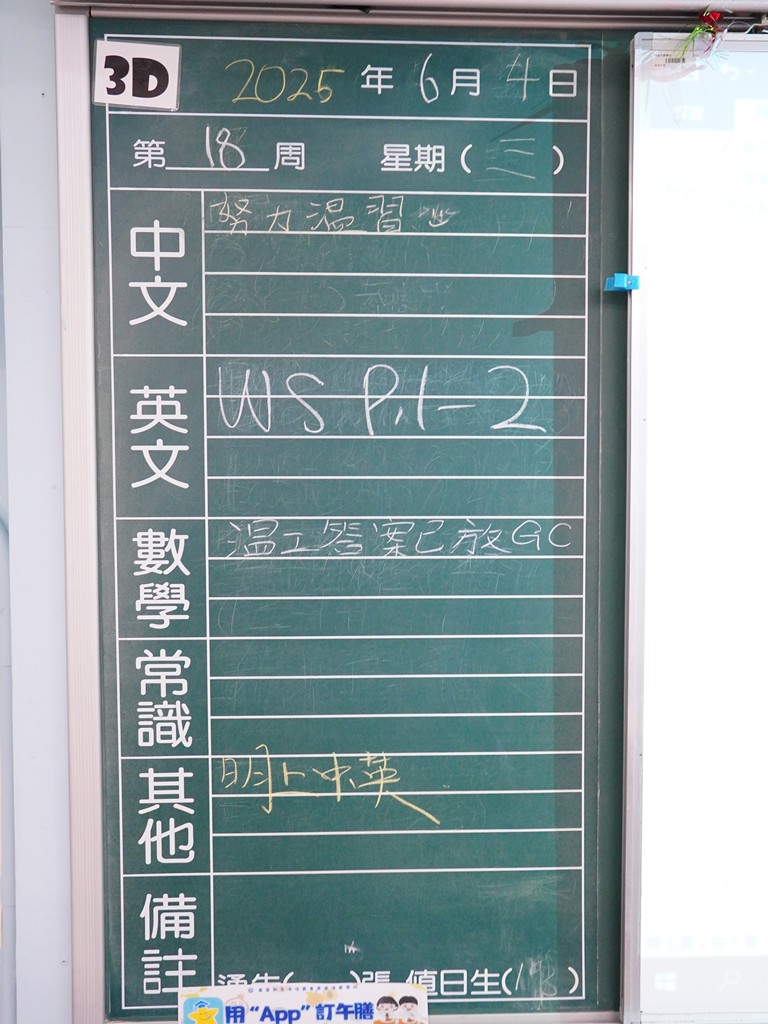 3D
2025年6月4日
第18周 星期(三)
中文 努力温習
英文 WS P.1-2
數學 温工答案已放GC
常識
其他 明上中英
備註
通告( )張 值日生( )
用“App”訂午膳